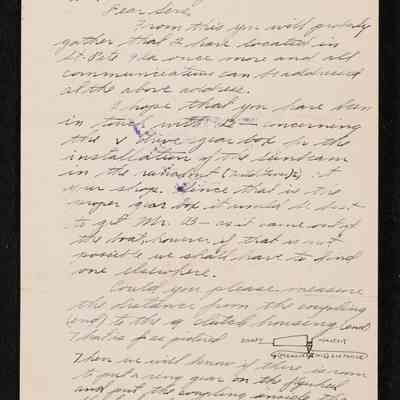 Dear Sers,
From this you will probably
gather that I have located in
St. Pete Fla once more and all
communications can be addressed
at the above address.
I hope that you have been
in touch with — concerning
the V drive gear box for the
installation of the sunbeam
in the at
your shop. Since that is the
proper gear box it would be best
to get Mr. — as it came out of
the boat, however, if that is not
possible we shall have to find
one elsewhere.
Could you please measure
the distance from the coupling
(end) to the clutch housing (end)
that is as pictured
Then we will know if there is room
to put a ring gear on the flywheel
and put the coupling inside the